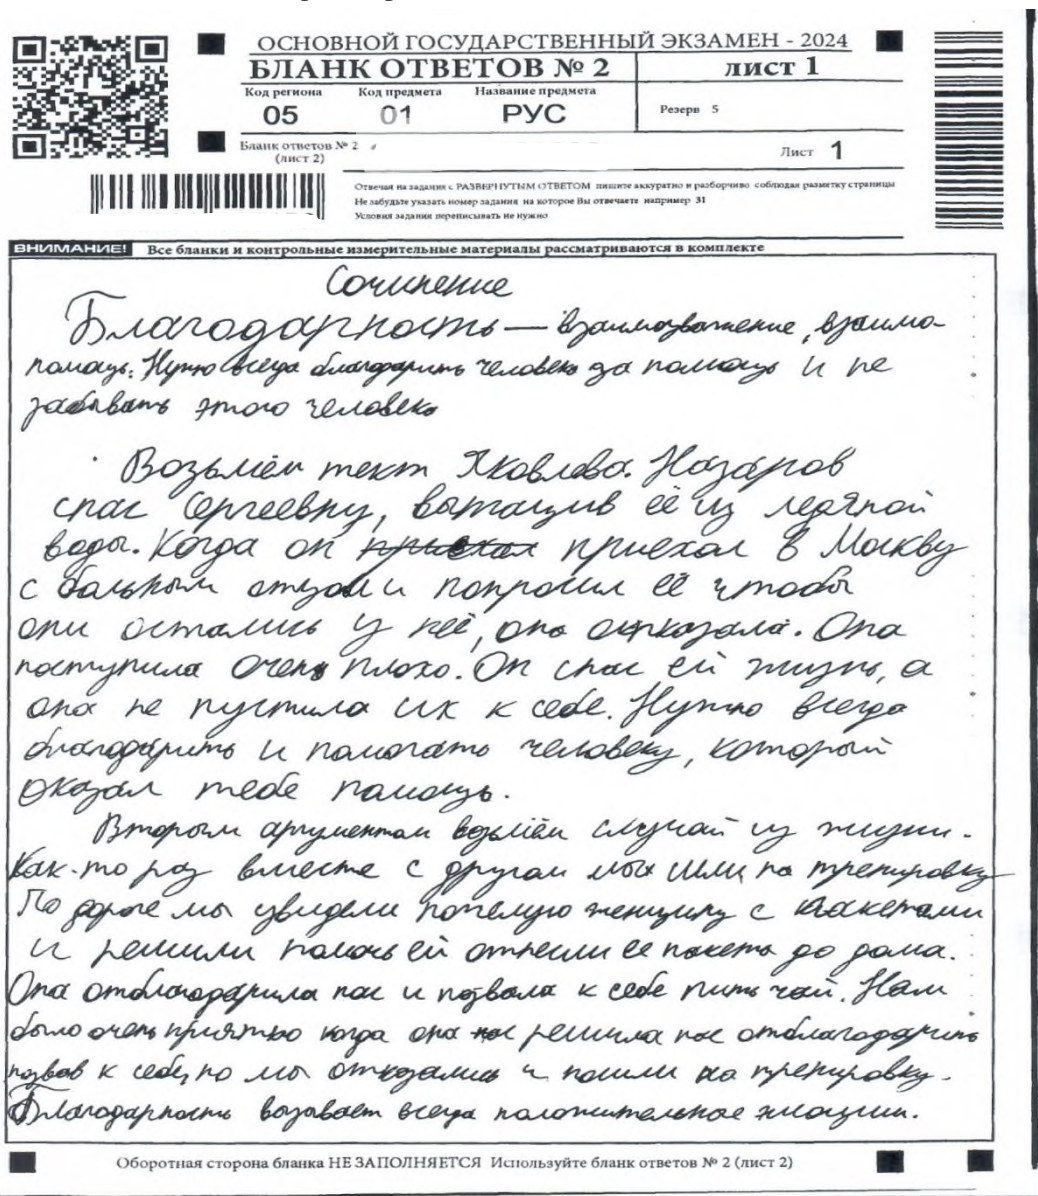 ОСНОВНОЙ ГОСУДАРСТВЕННЫЙ ЭКЗАМЕН - 2024
БЛАНК ОТВЕТОВ № 2 лист 1
Код региона Код предмета Название предмета
05 01 РУС Резерв 5
Бланк ответов № 2
(лист 2) Лист 1
Отвечая на задания с РАЗВЕРНУТЫМ ОТВЕТОМ пишите аккуратно и разборчиво соблюдая разметку страницы
Не забудьте указать номер задания на которое Вы отвечаете например 31
Условия задания переписывать не нужно
ВНИМАНИЕ! Все бланки и контрольные измерительные материалы рассматриваются в комплекте
Сочинение
Благодарность — взаимоуважение, взаимо-
помощь. Нужно всегда благодарить человека за помощь и не
забывать этого человека
Возьмём текст Яковлева. Назаров
спас Сергеевну, вытащив её из ледяной
воды. Когда он приехал приехал в Москву
с больным отцом и попросил её чтобы
они остались у неё, она отказала. Она
поступила очень плохо. Он спас ей жизнь, а
она не пустила их к себе. Нужно всегда
благодарить и помогать человеку, который
оказал тебе помощь.
Вторым аргументом возьмём случай из жизни.
Как-то раз вместе с другом мы шли на тренировку
По дороге мы увидели пожелую женщину с пакетами
и решили помочь ей отнесли её пакеты до дома.
Она отблагодарила нас и позвала к себе пить чай. Нам
было очень приятно когда она решила нас отблагодарить
позвав к себе, но мы отказались и пошли на тренировку.
Благодарность вызывает всегда положительные эмоции.
Оборотная сторона бланка НЕ ЗАПОЛНЯЕТСЯ Используйте бланк ответов № 2 (лист 2)